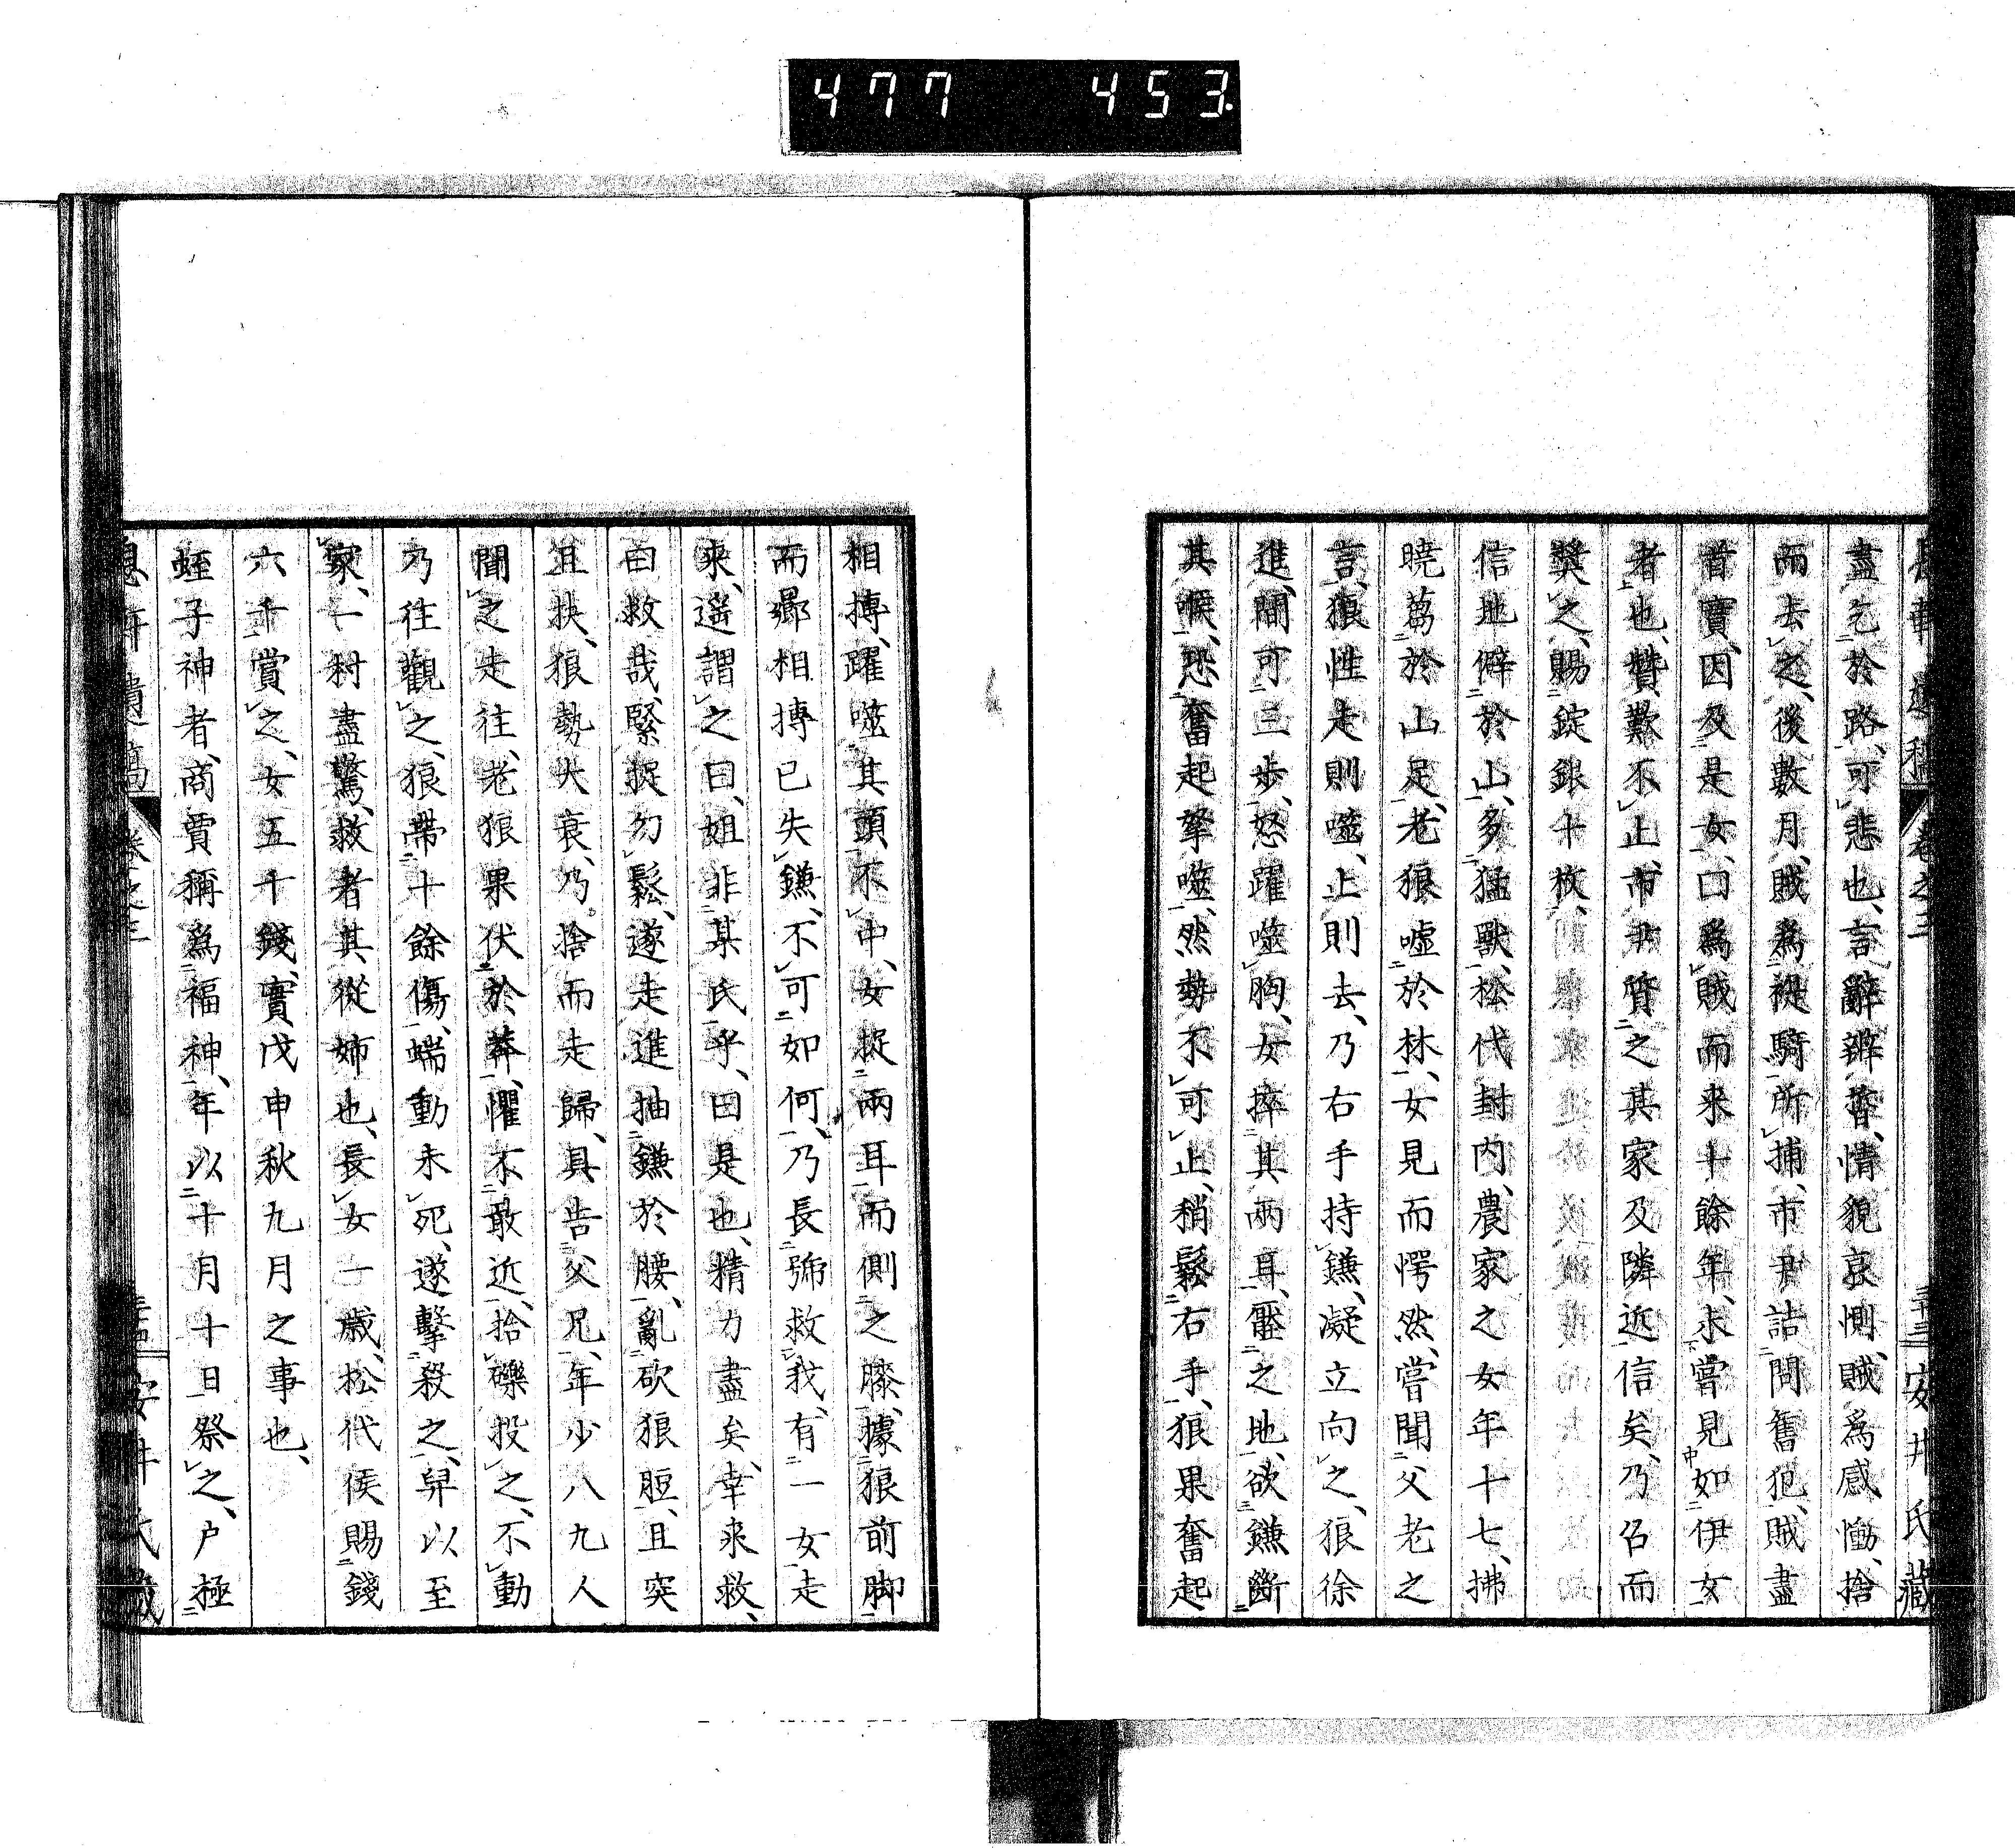 477 453
盡乞於路、可悲也、言辭辨審、情貌哀惻、賊爲感慟、捨
而去之、後數月、賊爲襚騎所捕、市尹詰問舊犯、賊盡
首實、因及是女、曰爲賊而来十餘年、未嘗見如伊女
者也、贊歎不止、市尹質之其家及隣近信矣、乃召而
奬之、賜錠銀十枚、
信地僻於山、多猛獸、松代封内、農家之女年十七、拂
曉芻於山足、老狼嘘於林、女見而愕然、嘗聞父老之
言、狼性走則噬、止則去、乃右手持鎌、凝立向之、狼徐
進、間可三歩、怒躍噬胸、女捽其兩耳、壓之地、欲鎌斷
其喉、恐奮起拏噬、然勢不可止、稍鬆右手、狼果奮起
相搏、躍噬其頭、不中、女捉兩耳而側之膝、據狼前脚
而鄕相搏已失鎌、不可如何、乃長號救我、有一女走
來、遥謂之曰、姐非某氏乎、曰是也、精力盡矣、幸来救、
曰救哉、緊捉勿鬆、遂走進抽鎌於腰、亂砍狼脰、且突
且抉、狼勢大衰、乃捨而走歸、具告父兄、年少八九人
聞之走往、老狼果伏於莽、懼不敢近、拾礫投之、不動
乃往觀之、狼帶十餘傷、蝡動未死、遂擊殺之、舁以至
家、一村盡驚、救者其從姉也、長女一歳、松代侯賜錢
六千賞之、女五千錢、實戊申秋九月之事也、
蛭子神者、商賈稱爲福神、年以十月十日祭之、戶極